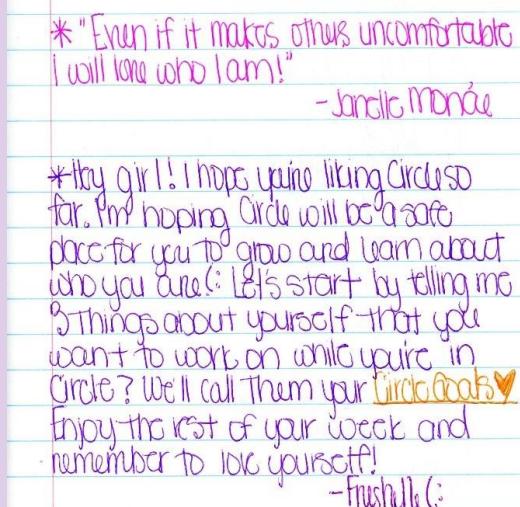 *"Even if it makes others uncomfortable
I will love who I am!"
-Janelle Monáe
*Hey girl! I hope you're liking Circle so
far. I'm hoping Circle will be a safe
place for you to grow and learn about
who you are (: Let's start by telling me
3 Things about yourself that you
want to work on while you're in
Circle? We'll call them your Circle Goals♥
Enjoy the rest of your week and
remember to love yourself!
-Freshelle (: